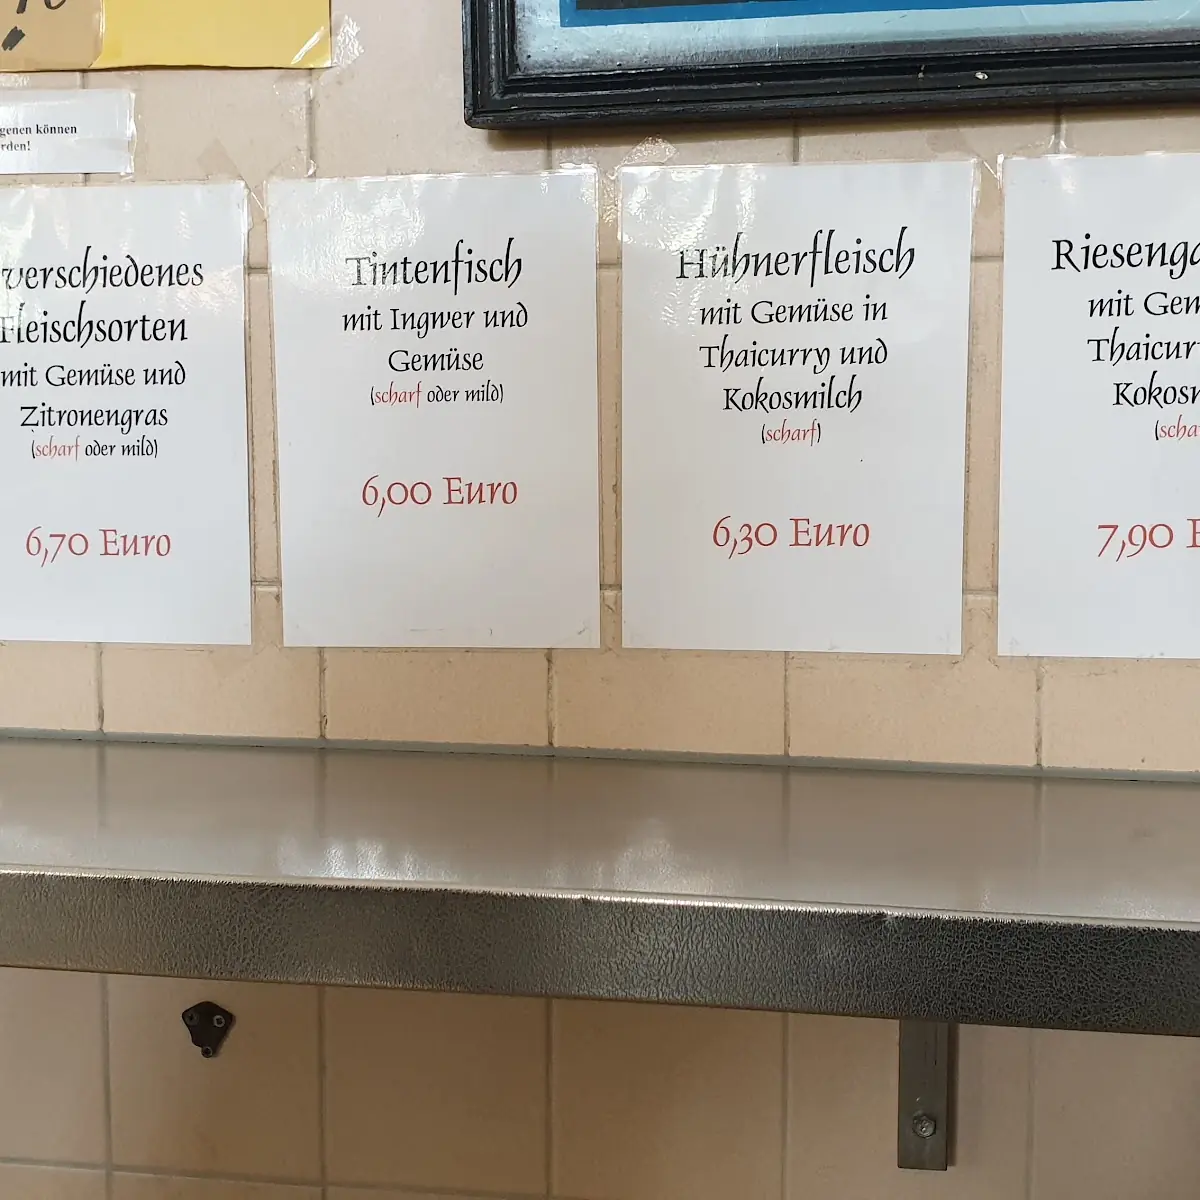 genen können
rden!
verschiedenes
Fleischsorten
mit Gemüse und
Zitronengras
(scharf oder mild)
6,70 Euro
Tintenfisch
mit Ingwer und
Gemüse
(scharf oder mild)
6,00 Euro
Hühnerfleisch
mit Gemüse in
Thaicurry und
Kokosmilch
(scharf)
6,30 Euro
Riesenga
mit Gem
Thaicur
Kokosm
(scha
7,90 E